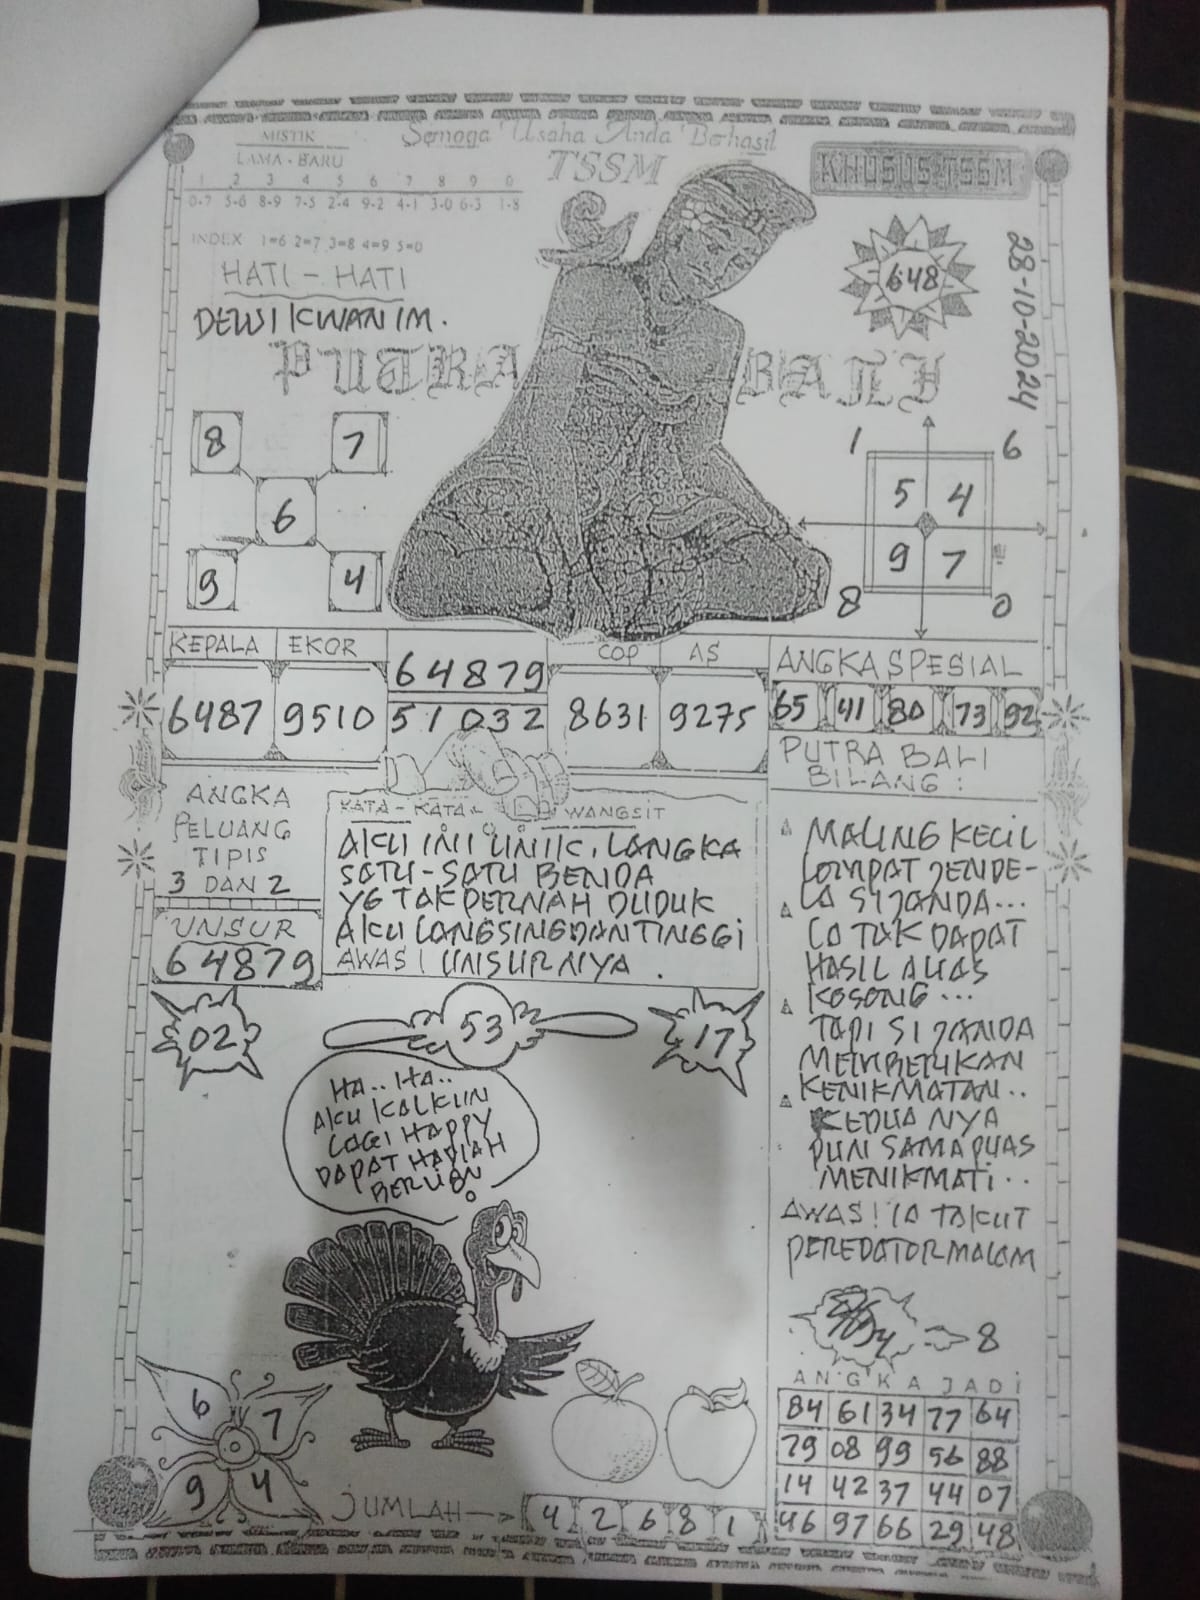 MISTIK
LAMA - BARU
1 2 3 4 5 6 7 8 9 0
0-7 5-6 8-9 7-5 2-4 9-2 4-1 3-0 6-3 1-8
INDEX 1=6 2=7 3=8 4=9 5=0
Semoga Usaha Anda Berhasil
TSSM
KHUSUS TSSM
28-10-2024
648
HATI - HATI
DEWI KWAN IM.
PUTRA BALI
8 7
6
9 4
1 6
5 4
9 7
8 0
KEPALA EKOR COP AS
6487 9510
64879
51032
8631 9275
ANGKA SPESIAL
65 41 80 73 92
ANGKA
PELUANG
TIPIS
3 DAN 2
UNSUR
64879
KATA - KATA WANGSIT
AKU INI UNIK, LANGKA
SATU-SATU BENDA
YG TAK PERNAH DUDUK
AKU LANGSING DAN TINGGI
AWAS! UNSURNYA.
PUTRA BALI
BILANG:
MALING KECIL
LOMPAT JENDE-
LA SI JANDA...
LO TAK DAPAT
HASIL ALIAS
KOSONG...
TAPI SI JANDA
MEMBERIKAN
KENIKMATAN..
KEDUA NYA
PUN SAMA PUAS
MENIKMATI..
AWAS! IA TAKUT
PEREDATOR MALAM
8
02
53
17
HA.. HA..
AKU KALKUN
LAGI HAPPY
DAPAT HADIAH
6 7
9 4
JUMLAH 4 2 6 8 1
ANGKA JADI
84 61 34 77 64
79 08 99 56 88
14 42 37 44 07
46 97 66 29 48